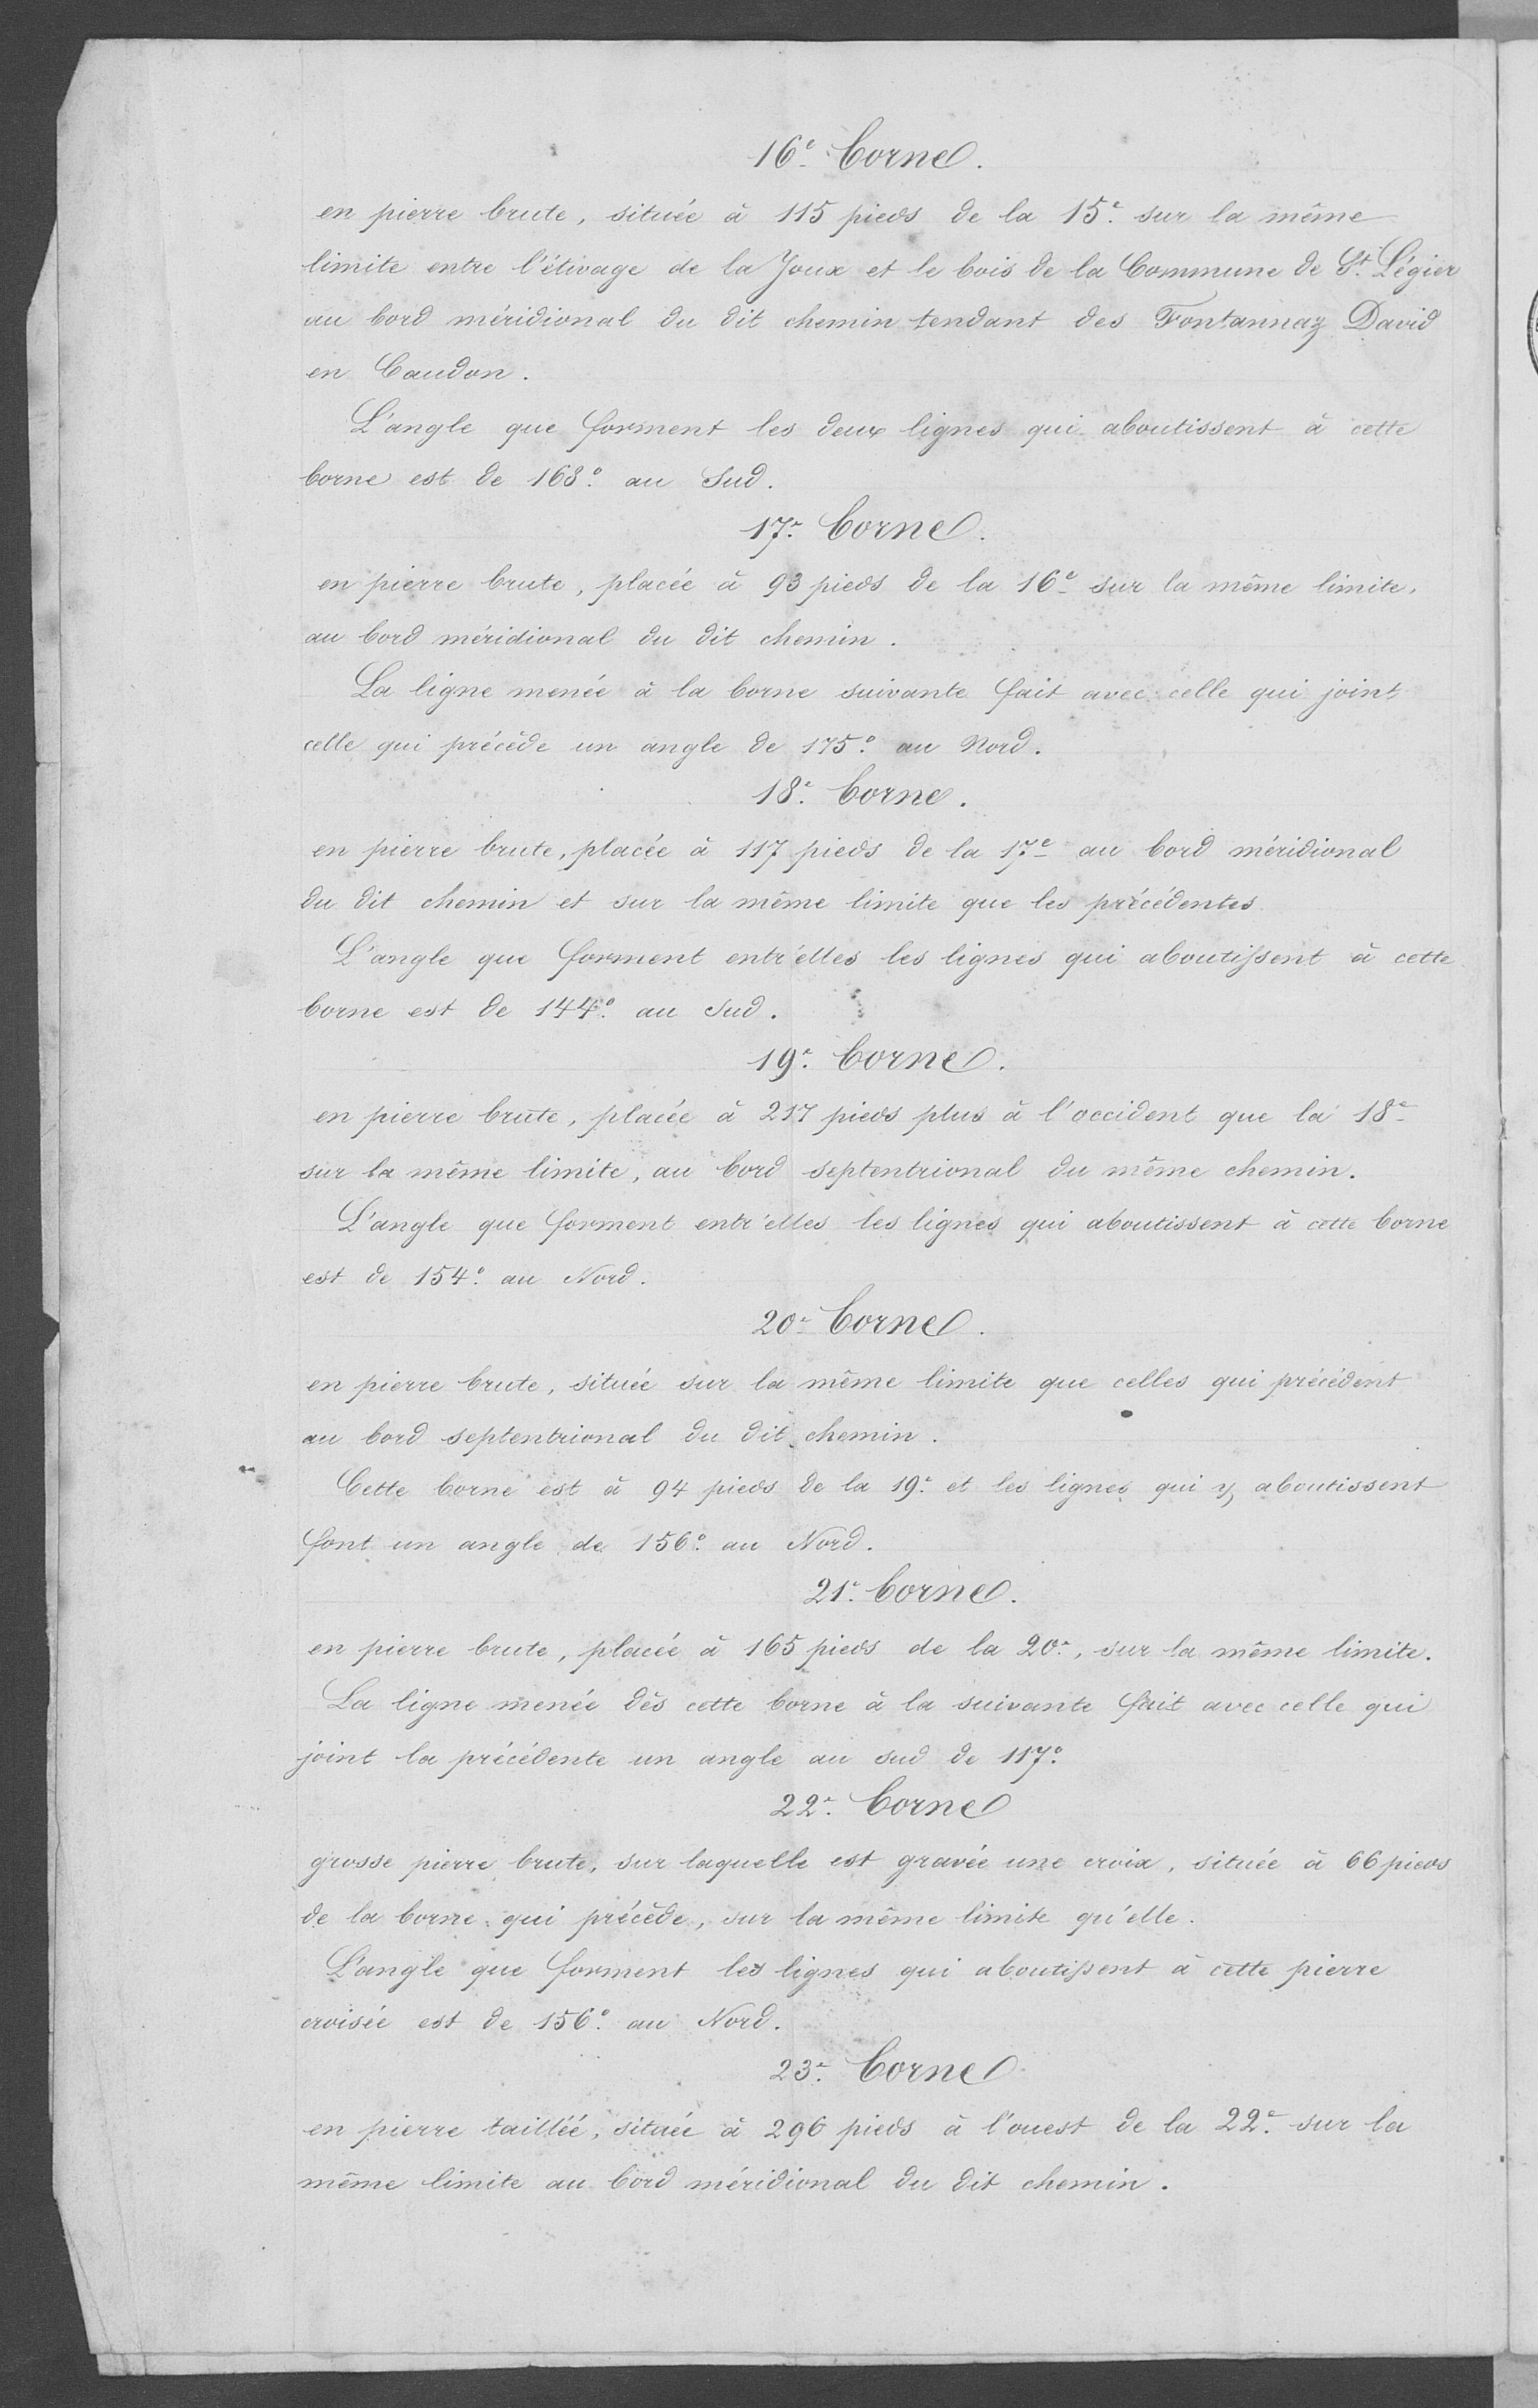 16e Borne.
en pierre brute, située à 115 pieds de la 15e sur la même
limite entre l'étivage de la Joux et le bois de la Commune de St. Légier
au bord méridional du dit chemin tendant des Fontannaz David
en Caudon.
L'angle que forment les deux lignes qui aboutissent à cette
borne est de 163° au Sud.
17e Borne.
en pierre brute, placée à 93 pieds de la 16e sur la même limite,
au bord méridional du dit chemin.
La ligne menée à la borne suivante fait avec celle qui joint
celle qui précède un angle de 175° au Nord.
18e Borne.
en pierre brute, placée à 117 pieds de la 17e au bord méridional
du dit chemin et sur la même limite que les précédentes
L'angle que forment entr'elles les lignes qui aboutissent à cette
borne est de 144° au Sud.
19e Borne.
en pierre brute, placée à 217 pieds plus à l'occident que la 18e
sur la même limite, au bord septentrional du même chemin.
L'angle que forment entr'elles les lignes qui aboutissent à cette borne
est de 154° au Nord.
20e Borne.
en pierre brute, située sur la même limite que celles qui précédent
au bord septentrional du dit chemin.
Cette borne est à 94 pieds de la 19e et les lignes qui y aboutissent
font un angle de 156° au Nord.
21e Borne.
en pierre brute, placée à 165 pieds de la 20e, sur la même limite.
La ligne menée dès cette borne à la suivante fait avec celle qui
joint la précédente un angle au sud de 117°
22e Borne
grosse pierre brute, sur laquelle est gravée une croix, située à 66 pieds
de la borne qui précède, sur la même limite qu'elle.
L'angle que forment les lignes qui aboutissent à cette pierre
croisée est de 156° au Nord.
23e Borne
en pierre taillée, située à 296 pieds à l'ouest de la 22e sur la
même limite au bord méridional du dit chemin.